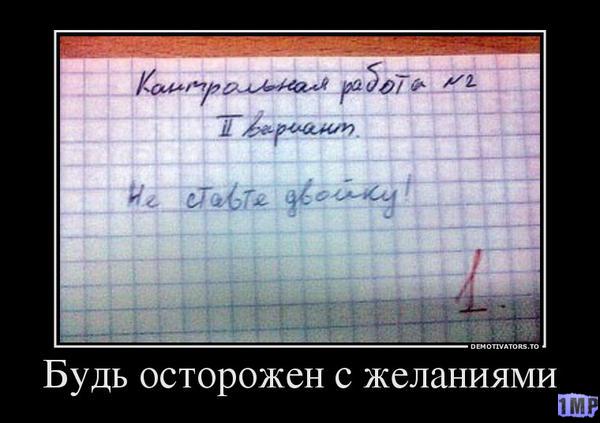 Контрольная работа №2
II вариант.
Не ставте двойку!
1.
DEMOTIVATORS.TO
Будь осторожен с желаниями
1MP